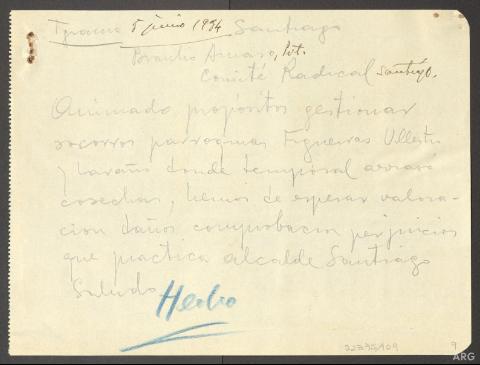 5 junio 1934 Santiago
Braulio Amaro, Pdt.
Comité Radical Santiago.
Animado propositos gestionar
socorros parroquias Figueiras Villestro
y Laraño donde temporal arrasó
cosechas, hemos de esperar valora-
cion daños comprobacion perjuicios
que practica alcalde Santiago
Saludo
Hecho
22395909
9
ARG